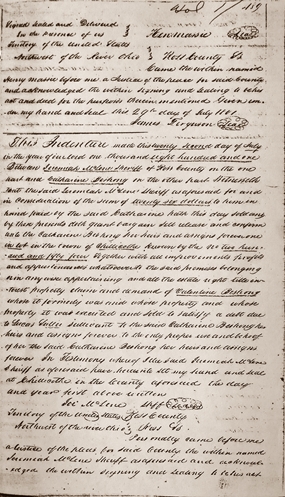 Vol 1 / 159
Signed Sealed and Delivered
in the presence of us
Territory of the united States
Northwest of the River Ohio } Ross County Ss
Came the within named
Henry massie before me a Justice of the peace for said County
and acknowledged the within signing and sealing to be his
act and deed for the purposes therein mentioned Given un-
der my hand and Seal this 29th day of July 1801
James Ferguson Seal
This Indenture made this twenty second day of July
in the year of our lord one thousand eight hundred and one
Between Jeremiah McLene Sheriff of Ross County of the one
part and Catharine Poshong of the other part Witnesseth
that the said Jeremiah McLene Sheriff as aforesaid for and
in Consideration of the sum of twenty six dollars to him in
hand paid by the said Catharine hath this day sold and
by these presents doth grant bargain sell release and confirm
unto the Catharine Poshong her heirs and assigns forever one
in lot in the town of Chillicothe known by the No two hun-
dred and fifty four together with all improvements profits
and appurtenances whatsoever to the said premises belonging
or in any wise appertaining and all the estate right title in-
terest property claim and demand of Valentine Poshong
whose it formerly was and whose property and as whose
Property it was executed and sold to satisfy a debt due
to
heirs and assigns forever to the only proper use and behoof
of her the said Catharine Poshong her heirs and assigns
forever In Testimony whereof I the said Jeremiah McLene
Sheriff as aforesaid have hereunto set my hand and seal
at Chillicothe in the County aforesaid the day
and year first above written
Jer McLene Sheriff Seal
Territory of the United States } Ross County
Northwest of the river Ohio } Ross Ss
Personally came before me
a Justice of the peace for said County the within named
Jeremiah McLene Sheriff as aforesaid and acknowl-
edged the within signing and sealing to be his